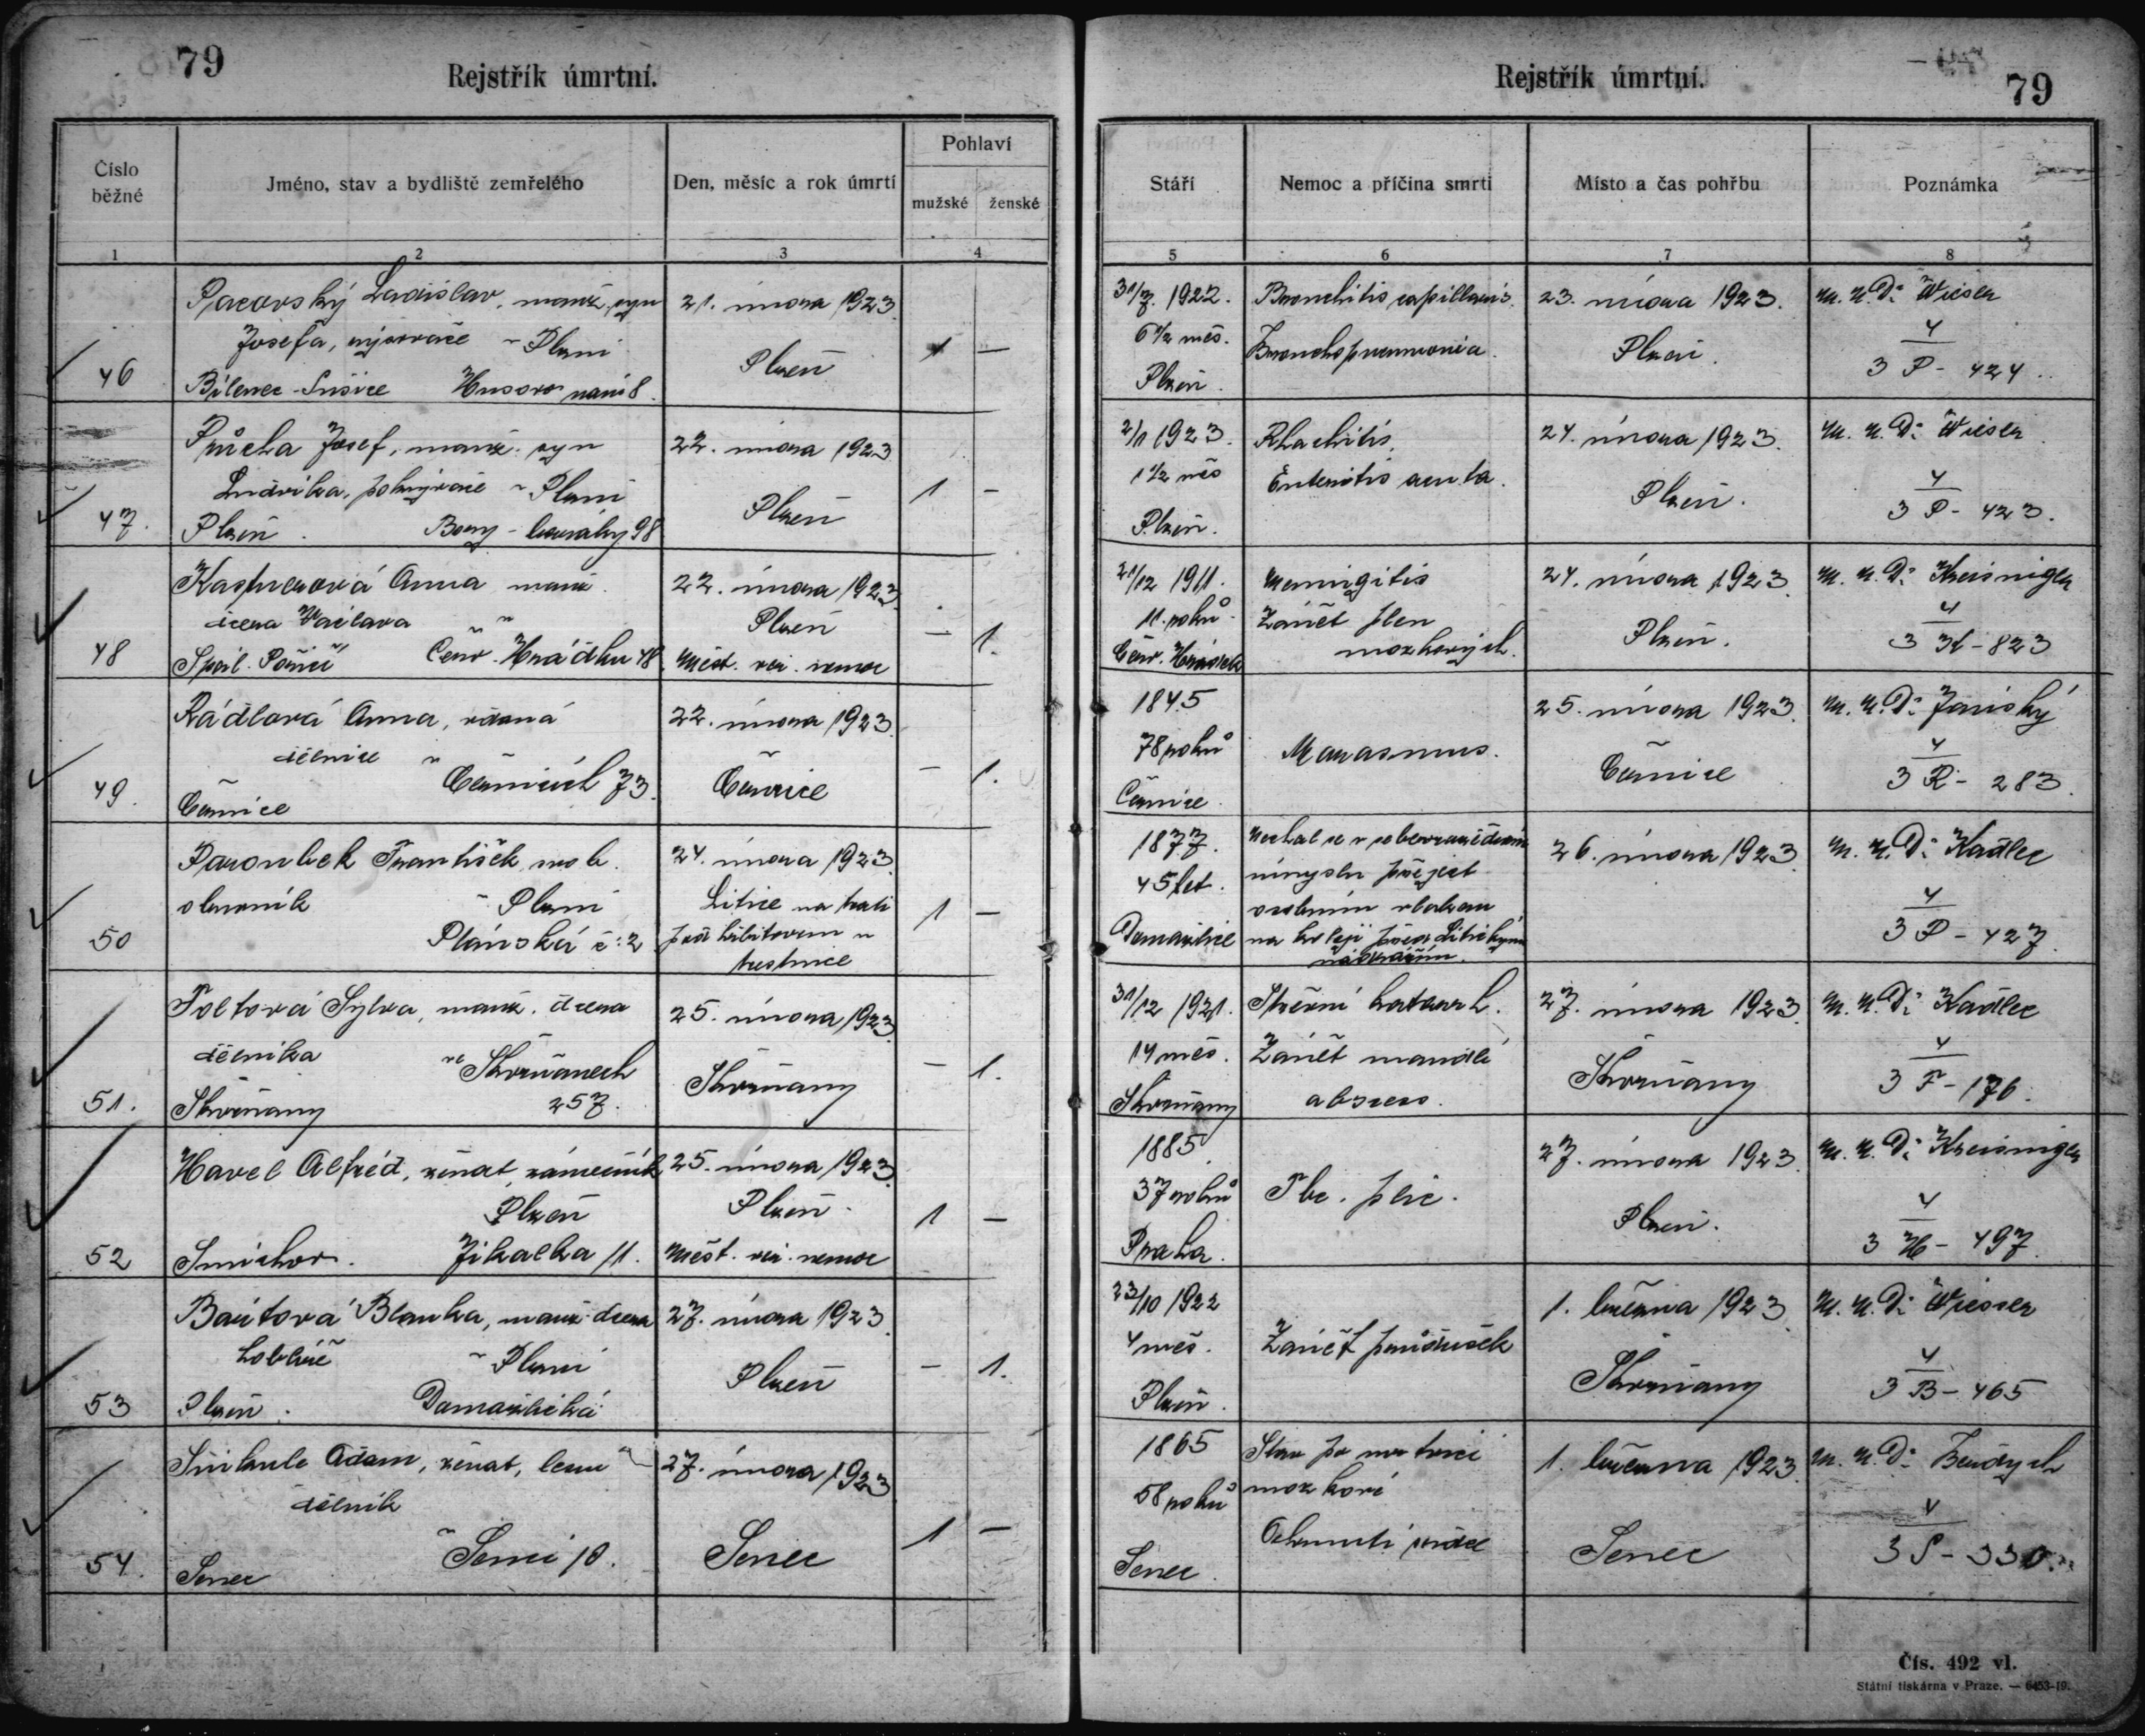 79
Rejstřík úmrtní.
Číslo běžné
Jméno, stav a bydliště zemřelého
Den, měsíc a rok úmrtí
Pohlaví
mužské
ženské
1
2
3
4
46
Pacovský Ladislav, manž. syn
Josefa, v Plzni
Husovo nám 8.
21. února 1923
Plzeň
1 —
47.
Průcha Josef, manž. syn
Ludvíka, v Plzni
Plzeň. Bory 98
22. února 1923
Plzeň
1 —
48
Anna manž.
dcera Václava v
Spál. Poříčí Červ. Hrádku 48
22. února 1923
Plzeň
Měst. vš. nemoc
— 1.
49.
Rádlová Anna, vdova
dělnice v
Černicích 73.
Černice
22. února 1923
Černice
— 1.
50
Paroubek František, svob.
v Plzni
Plánská č: 2
24. února 1923
Litice na trati
pod hřbitovem u
trestnice
1 —
51.
Foltová Sylva, manž. dcera
dělníka ve Skvrňanech
Skvrňany 257.
25. února 1923
Skvrňany
— 1.
52
Havel Alfréd, ženat, zámečník
Plzeň
Smíchov. Jikalka 11.
25. února 1923
Plzeň.
Měst. vš. nemoc
1 —
53
Bártová Blanka, manž. dcera
v Plzni
Plzeň. Domažlická
27. února 1923
Plzeň
— 1.
54.
Adam, ženat,
dělník
v Senci 10.
Senec
27. února 1923
Senec
1 —
Rejstřík úmrtní.
79
Stáří
Nemoc a příčina smrti
Místo a čas pohřbu
Poznámka
5
6
7
8
31/7. 1922.
6 1/2 měs.
Plzeň.
Bronchitis capillaris.
Bronchopneumonia.
23. února 1923.
Plzeň.
M. U. Dr. Wiesner
4
3 P - 424.
2/1 1923.
1 1/2 měs
Plzeň.
Rhachitis.
Enteritis acuta.
24. února 1923.
Plzeň.
M. U. Dr. Wiesner
4
3 P - 423.
21/12 1911.
11. roků
Červ. Hrádek
Meningitis
Zánět plen
mozkových.
24. února 1923.
Plzeň.
M. U. Dr. Kreisinger
4
3 K - 823
1845
78 roků
Černice.
Marasmus.
25. února 1923.
Černice
M. U. Dr. Janský
4
3 R - 283.
1877.
45 let.
Domažlice
Nechal se v sebevražedném
úmyslu přejet
osobním vlakem
na koleji před Litickým
nádražím.
26. února 1923.
M. U. Dr. Kadlec
4
3 P - 427.
31/12 1921.
14 měs.
Skvrňany
Střevní katarrh.
Zánět mandlí
abscess.
27. února 1923.
Skvrňany
M. U. Dr. Kadlec
4
3 F - 176.
1885.
37 roků
Praha.
Tbc. plic.
27. února 1923.
Plzeň.
M. U. Dr. Kreisinger
4
3 H - 497.
23/10 1922
4 měs.
Plzeň.
Zánět průdušek
1. března 1923.
Skvrňany
M. U. Dr. Wiesner
4
3 B - 465
1865
58 roků
Senec.
Stav po mrtvici
mozkové
Ochrnutí srdce
1. března 1923.
Senec
M. U. Dr. Bendych
4
3 S - 330.
Čís. 492 vl.
Státní tiskárna v Praze. — 6453-19.